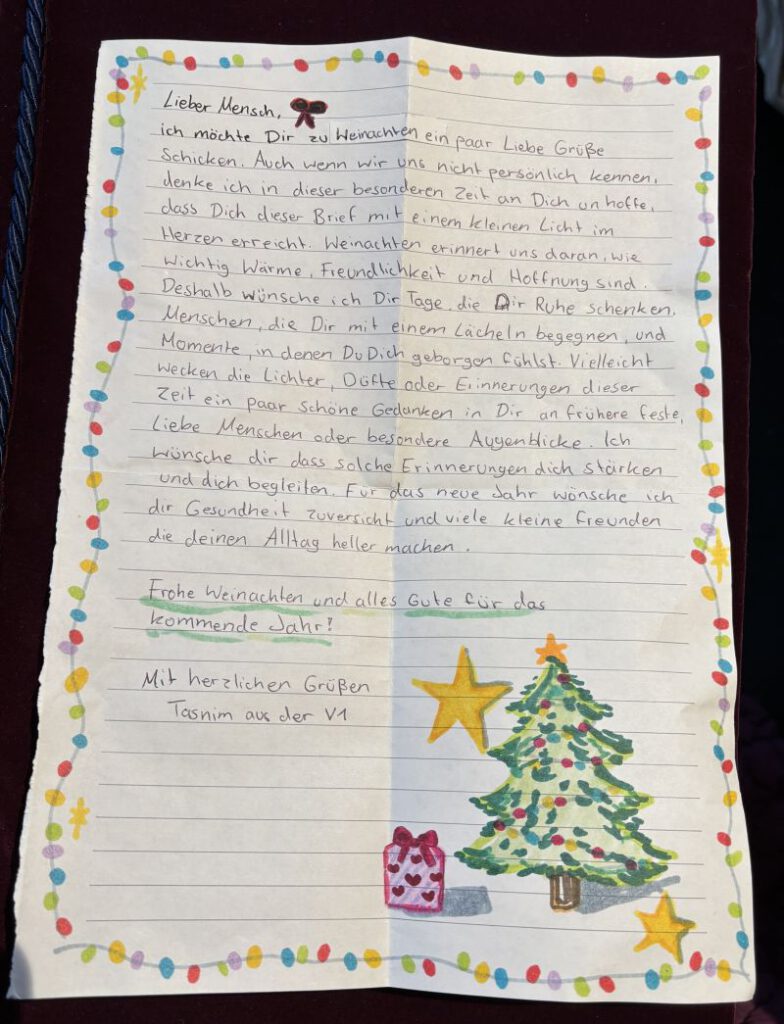 Lieber Mensch,
ich möchte Dir zu Weinachten ein paar Liebe Grüße
Schicken. Auch wenn wir uns nicht persönlich kennen,
denke ich in dieser besonderen Zeit an Dich un hoffe,
dass Dich dieser Brief mit einem kleinen Licht im
Herzen erreicht. Weinachten erinnert uns daran, wie
wichtig Wärme, Freundlichkeit und Hoffnung sind.
Deshalb wünsche ich Dir Tage, die Dir Ruhe schenken,
Menschen, die Dir mit einem Lächeln begegnen, und
Momente, in denen Du Dich geborgen fühlst. Vielleicht
wecken die Lichter, Düfte oder Erinnerungen dieser
Zeit ein paar schöne Gedanken in Dir an frühere feste,
Liebe Menschen oder besondere Augenblicke. Ich
wünsche dir dass solche Erinnerungen dich stärken
und dich begleiten. Für das neue Jahr wünsche ich
dir Gesundheit zuversicht und viele kleine Freunden
die deinen Alltag heller machen.
Frohe Weinachten und alles Gute für das
kommende Jahr!
Mit herzlichen Grüßen
Tasnim aus der V1